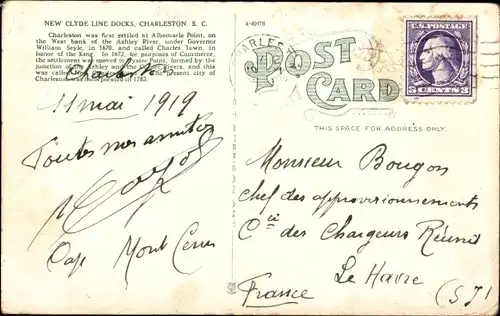 NEW CLYDE LINE DOCKS, CHARLESTON. S. C.
Charleston was first settled at Albemarle Point, on
the West bank of the Ashley River, under Governor
William Sayle, in 1670, and called Charles Town, in
honor of the King. In 1672, for purposes of Commerce,
the settlement was moved to Oyster Point, formed by the
junction of the Ashley and the Cooper Rivers, and this
was called New
present city of
Charleston was incorporated in 1783.
11 mai 1919
Toutes mes amitiés
Cap Mont Cenis
A-49778
POST
CARD
THIS SPACE FOR ADDRESS ONLY.
5 CENTS 3
Monsieur Bougon
Chef des approvisionnements
Cie des Chargeurs Réunis
Le Havre
France
(S I)